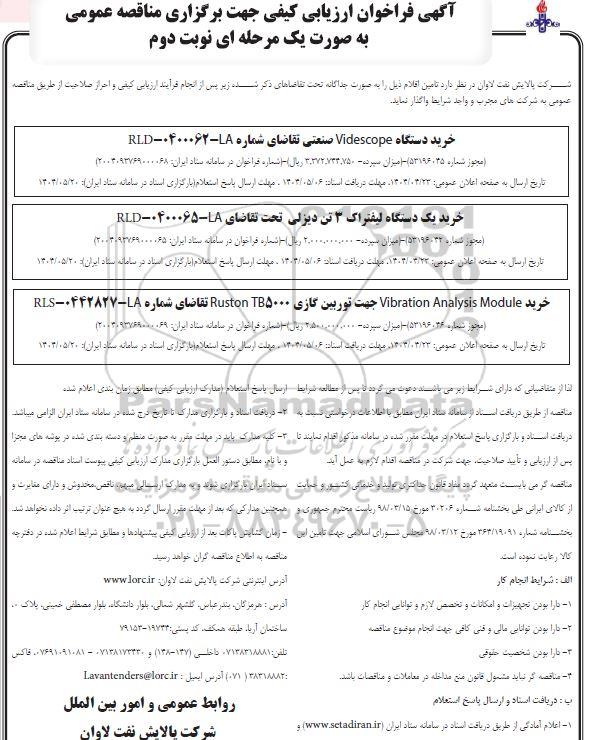 آگهی فراخوان ارزیابی کیفی جهت برگزاری مناقصه عمومی
به صورت یک مرحله ای نوبت دوم
شــرکت پالایش نفت لاوان در نظر دارد تامین اقلام ذیل را به صورت جداگانه تحت تقاضاهای ذکر شـــده زیر پس از انجام فرآیند ارزیابی کیفی و احراز صلاحیت از طریق مناقصه
عمومی به شرکت های مجرب و واجد شرایط واگذار نماید.
خرید دستگاه Videscope صنعتی تقاضای شماره RLD-0400062-LA
(مجوز شماره ۵۳۱۹۶۰۴۵)-(میزان سپرده- ۳,۳۷۲,۷۴۴,۷۵۰ ریال)-(شماره فراخوان در سامانه ستاد ایران: ۲۰۰۴۰۹۳۷۶۹۰۰۰۰۶۸)
تاریخ ارسال به صفحه اعلان عمومی: ۱۴۰۴/۰۴/۲۳، مهلت دریافت اسناد: ۱۴۰۴/۰۵/۰۶ ، مهلت ارسال پاسخ استعلام(بارگزاری اسناد در سامانه ستاد ایران): ۱۴۰۴/۰۵/۲۰
خرید یک دستگاه لیفتراک ۳ تن دیزلی تحت تقاضای RLD-0400065-LA
(مجوز شماره ۵۳۱۹۶۰۴۲)-(میزان سپرده- ۲,۰۰۰,۰۰۰,۰۰۰ ریال)-(شماره فراخوان در سامانه ستاد ایران: ۲۰۰۴۰۹۳۷۶۹۰۰۰۰۶۵)
تاریخ ارسال به صفحه اعلان عمومی: ۱۴۰۴/۰۴/۲۳، مهلت دریافت اسناد: ۱۴۰۴/۰۵/۰۶ ، مهلت ارسال پاسخ استعلام(بارگزاری اسناد در سامانه ستاد ایران): ۱۴۰۴/۰۵/۲۰
خرید Vibration Analysis Module جهت توربین گازی Ruston TB5000 تقاضای شماره RLS-0442827-LA
(مجوز شماره ۵۳۱۹۶۰۴۶)-(میزان سپرده- ۲,۵۰۰,۰۰۰,۰۰۰ ریال)-(شماره فراخوان در سامانه ستاد ایران: ۲۰۰۴۰۹۳۷۶۹۰۰۰۰۶۹)
تاریخ ارسال به صفحه اعلان عمومی: ۱۴۰۴/۰۴/۲۳، مهلت دریافت اسناد: ۱۴۰۴/۰۵/۰۶ ، مهلت ارسال پاسخ استعلام(بارگزاری اسناد در سامانه ستاد ایران): ۱۴۰۴/۰۵/۲۰
لذا از متقاضیانی که دارای شــرایط زیر می باشــند دعوت می گردد تا پس از مطالعه شرایط
مناقصه از طریق دریافت اســناد از سامانه ستاد ایران مطابق با اطلاعات درخواستی نسبت به
دریافت اســناد و بارگزاری پاسخ استعلام در مهلت مقرر شده در سامانه مذکور اقدام نمایند تا
پس از ارزیابی و تأیید صلاحیت، جهت شرکت در مناقصه اقدام لازم به عمل آید.
مناقصه گر می بایست متعهد گردد مفاد قانون حداکثری تولید و خدماتی کشــور و حمایت
از کالای ایرانی طی بخشنامه شماره ۳۰۲۰۶ مورخ ۹۸/۰۳/۱۵ ریاست محترم جمهوری و
بخشــنامه شماره ۳۶۴/۱۹۰۹۱ مورخ ۹۸/۰۳/۱۲ مجلس شــورای اسلامی جهت تامین این
کالا رعایت نموده است.
الف : شرایط انجام کار
۱- دارا بودن تجهیزات و امکانات و تخصص لازم و توانایی انجام کار
۲- دارا بودن توانایی مالی و فنی کافی جهت انجام موضوع مناقصه
۳- دارا بودن شخصیت حقوقی
۴- مناقصه گر نباید مشمول قانون منع مداخله در معاملات و مناقصات باشد.
ب : دریافت اسناد و ارسال پاسخ استعلام
۱- اعلام آمادگی از طریق دریافت اسناد در سامانه ستاد ایران (www.setadiran.ir) و
ارسال پاسخ استعلام (مدارک ارزیابی کیفی) مطابق زمان بندی اعلام شده
۲- دریافت اسناد و بارگزاری مدارک تا تاریخ درج شده در سامانه ستاد ایران الزامی میباشد.
۳- کلیه مدارک باید در مهلت مقرر به صورت منظم و دسته بندی شده در پوشه های مجزا
و با نام مطابق دستور العمل بارگزاری مدارک ارزیابی کیفی پیوست اسناد مناقصه در سامانه
ســتاد ایران بارگزاری شوند و به مدارک ارســالی مبهم، ناقص،مخدوش و دارای مغایرت و
همچنین مدارکی که بعد از مهلت مقرر ارسال گردد به هیچ عنوان ترتیب اثر داده نخواهد شد.
- زمان گشایش پاکات بعد از ارزیابی کیفی پیشنهادها و مطابق شرایط اعلام شده در دفترچه
مناقصه به اطلاع مناقصه گران خواهد رسید.
آدرس اینترنتی شرکت پالایش نفت لاوان: www.lorc.ir
آدرس : هرمزگان، بندرعباس، گلشهر شمالی، بلوار دانشگاه، بلوار مصطفی خمینی، پلاک ۰،
ساختمان آریا، طبقه همکف، کد پستی:۱۹۷۴۴-۷۹۱۵۳
تلفن:۰۷۱۳۸۳۱۸۸۸۱ داخلــی (۱۴۷-۱۴۸) و ۰۷۱۳۸۱۷۳۴۳۰ - ۰۷۶۹۱۰۹۱۰۸۱، فاکس
:۳۸۳۱۸۸۸۲( ۰۷۱) آدرس ایمیل : Lavantenders@lorc.ir
روابط عمومی و امور بین الملل
شرکت پالایش نفت لاوان
ParsNamadData
۰۲۱-۸۸۳۴۹۶۷۰-۵